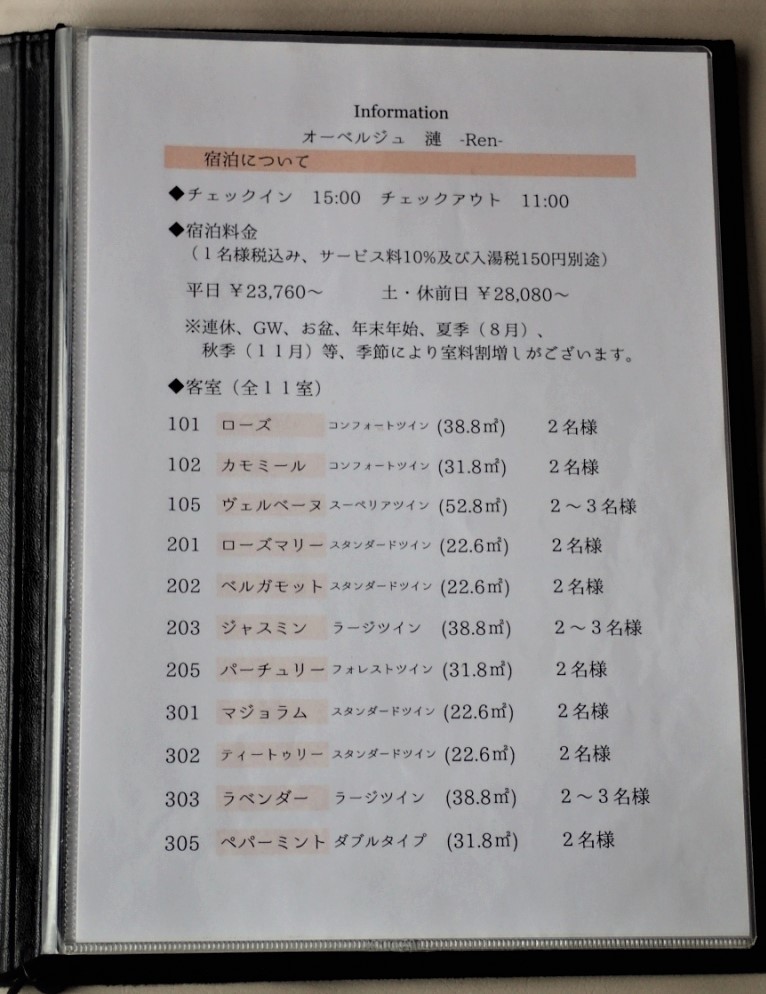 Information
オーベルジュ 漣 -Ren-
宿泊について
◆チェックイン 15:00 チェックアウト 11:00
◆宿泊料金
（１名様税込み、サービス料10%及び入湯税150円別途）
平日 ￥23,760～ 土・休前日 ￥28,080～
※連休、GW、お盆、年末年始、夏季（８月）、
秋季（１１月）等、季節により室料割増しがございます。
◆客室（全１１室）
101 ローズ コンフォートツイン (38.8㎡) ２名様
102 カモミール コンフォートツイン (31.8㎡) ２名様
105 ヴェルベーヌ スーペリアツイン (52.8㎡) ２～３名様
201 ローズマリー スタンダードツイン (22.6㎡) ２名様
202 ベルガモット スタンダードツイン (22.6㎡) ２名様
203 ジャスミン ラージツイン (38.8㎡) ２～３名様
205 パーチュリー フォレストツイン (31.8㎡) ２名様
301 マジョラム スタンダードツイン (22.6㎡) ２名様
302 ティートゥリー スタンダードツイン (22.6㎡) ２名様
303 ラベンダー ラージツイン (38.8㎡) ２～３名様
305 ペパーミント ダブルタイプ (31.8㎡) ２名様